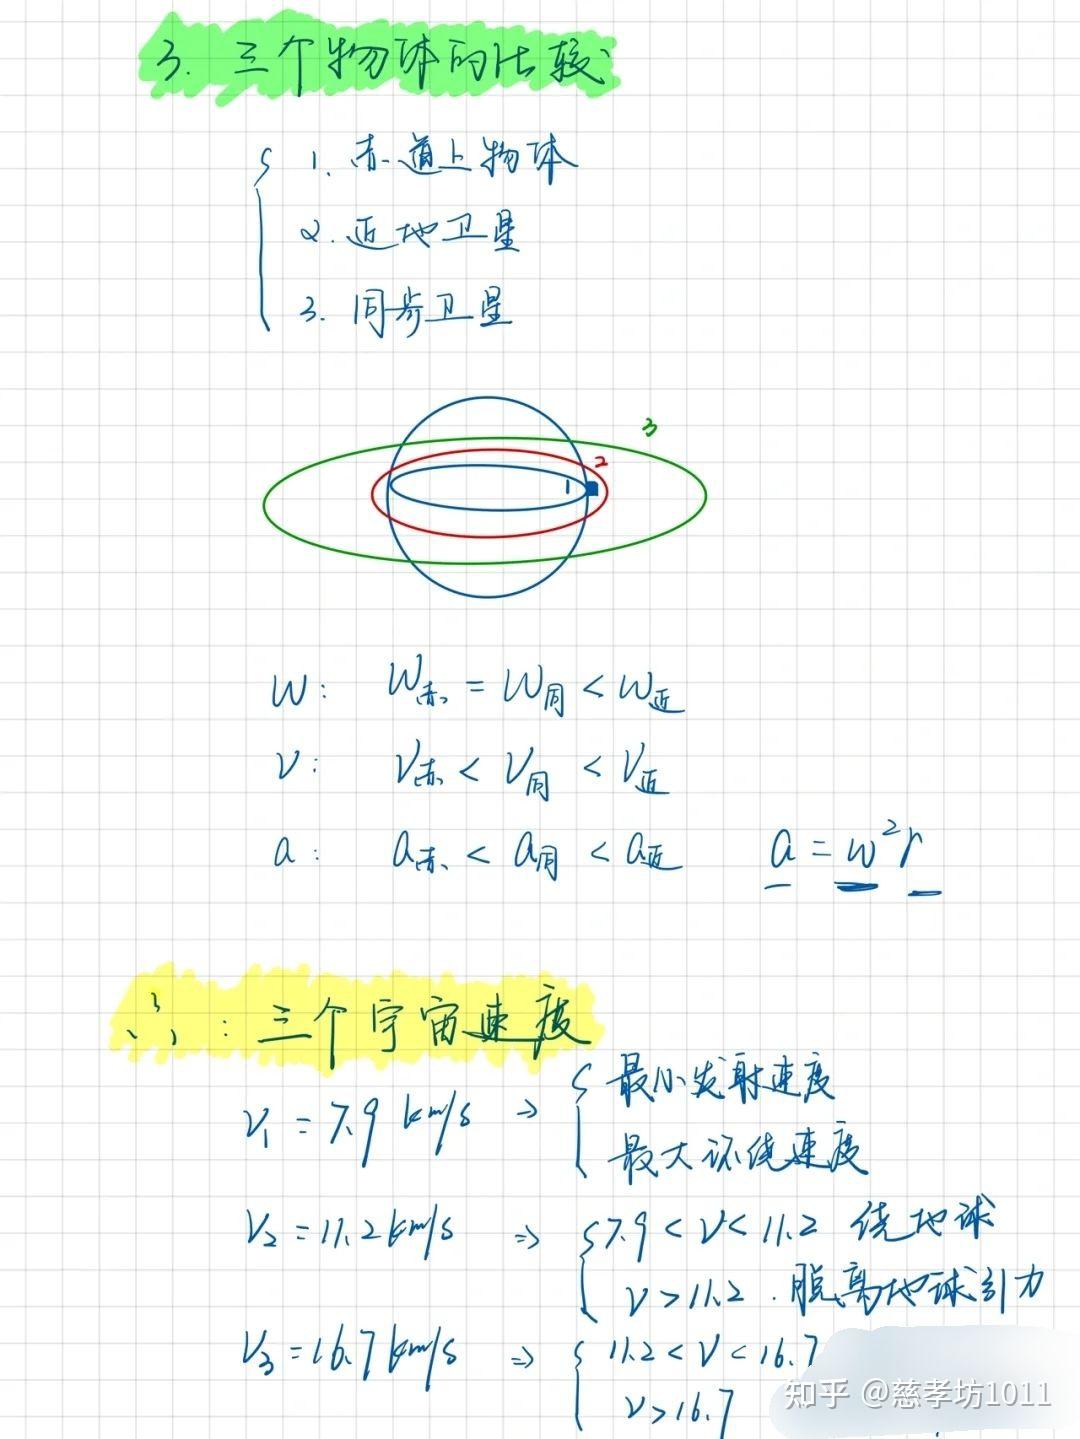 3. 三个物体的比较
1. 赤道上物体
2. 近地卫星
3. 同步卫星
3
2
1
w: w赤 = w同 < w近
v: v赤 < v同 < v近
a: a赤 < a同 < a近 a = w²r
三个宇宙速度
v₁ = 7.9 km/s ⇒ 最小发射速度
最大环绕速度
v₂ = 11.2 km/s ⇒ 7.9 < v < 11.2 绕地球
v > 11.2. 脱离地球引力
v₃ = 16.7 km/s ⇒ 11.2 < v < 16.7
v > 16.7
知乎 @慈孝坊1011